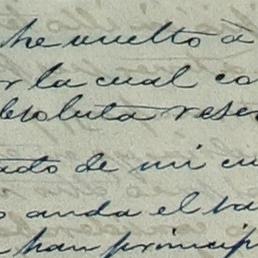 he vuelto á
r la cual co
absoluta reser
tado de mi cu
o anda el ta
han princip